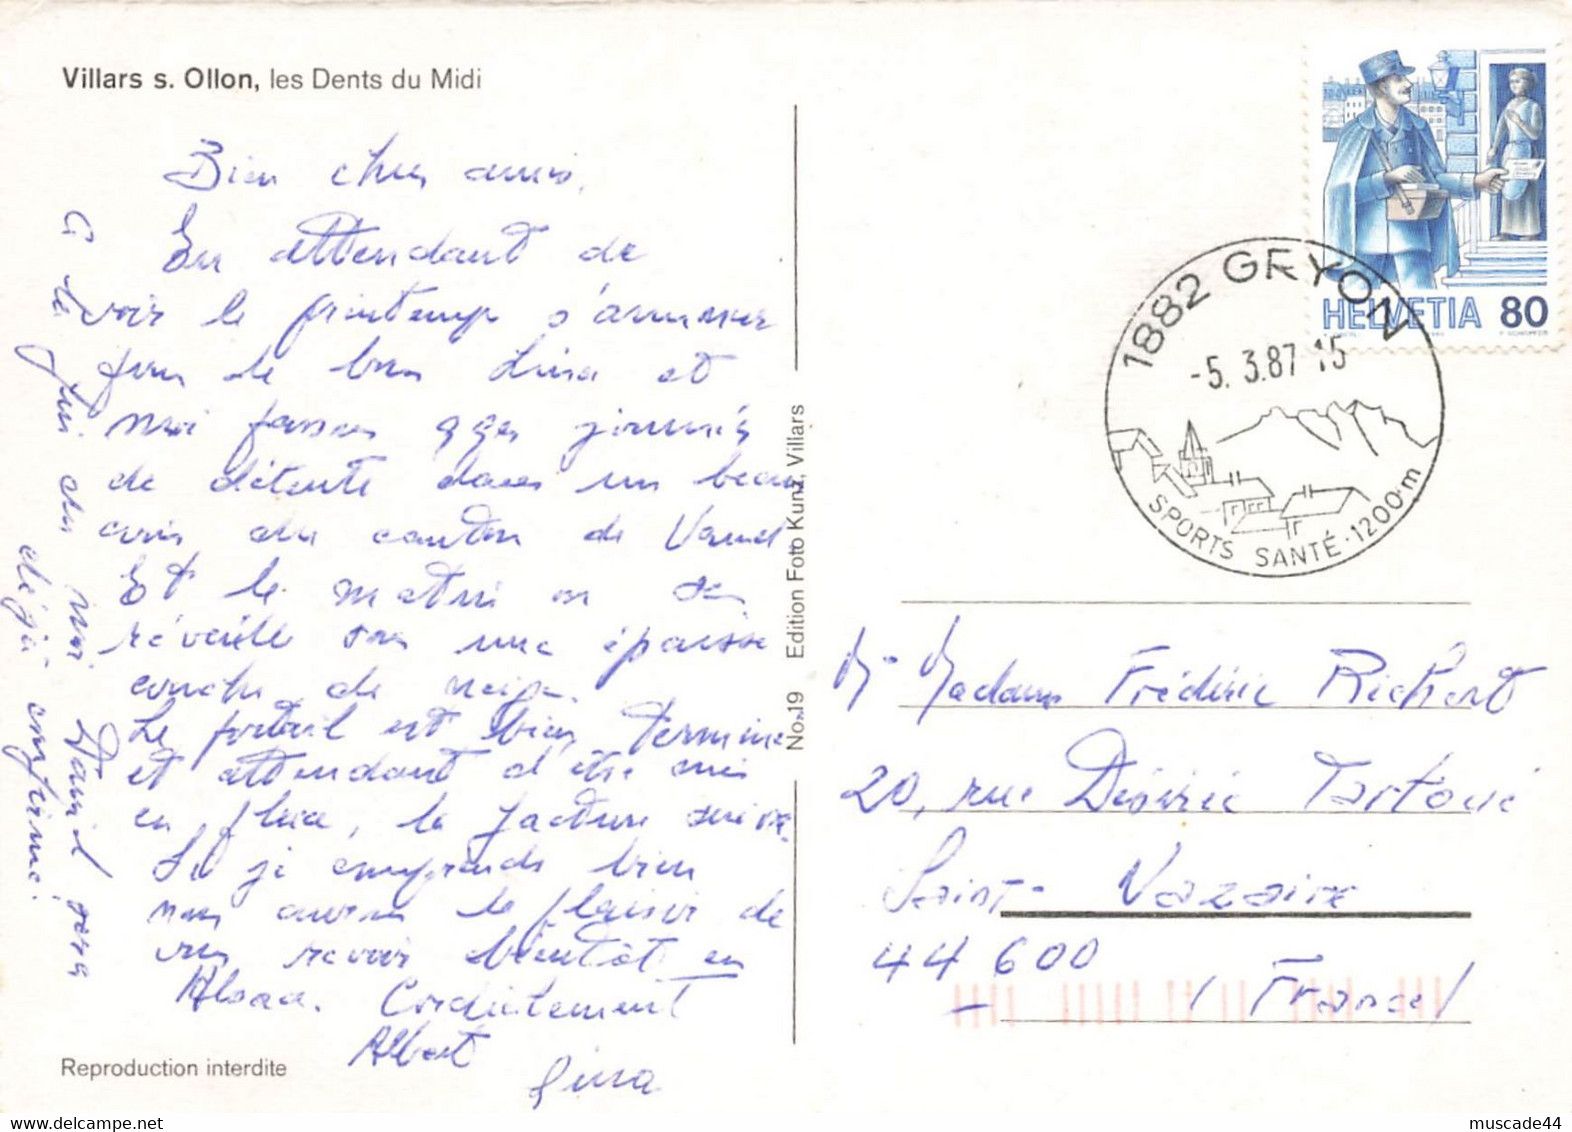 Villars s. Ollon, les Dents du Midi
Bien chers amis,
En attendant de
voir le printemps s'amener
pour de bon Lina et
moi passons qqes journées
de détente dans un beau
coin du canton de Vaud
Et le matin on se
réveille sous une épaisse
couche de neige.
Le portail est bien terminé
et attendant d'être mis
en place, la facture suivra.
Si je comprends bien
nous aurons le plaisir de
vous revoir bientôt en
Alsace. Cordialement
Albert
Lina
le
juin
Daniel sera
déjà confirmé.
Reproduction interdite
No. 19 Edition Foto Kunz, Villars
HELVETIA 80
1882 GRYON
-5. 3.87 15
SPORTS SANTÉ · 1200 m
M. Madame Frédéric Richert
20, rue Désirée Tartoué
Saint-Nazaire
44 600
( France )
muscade44